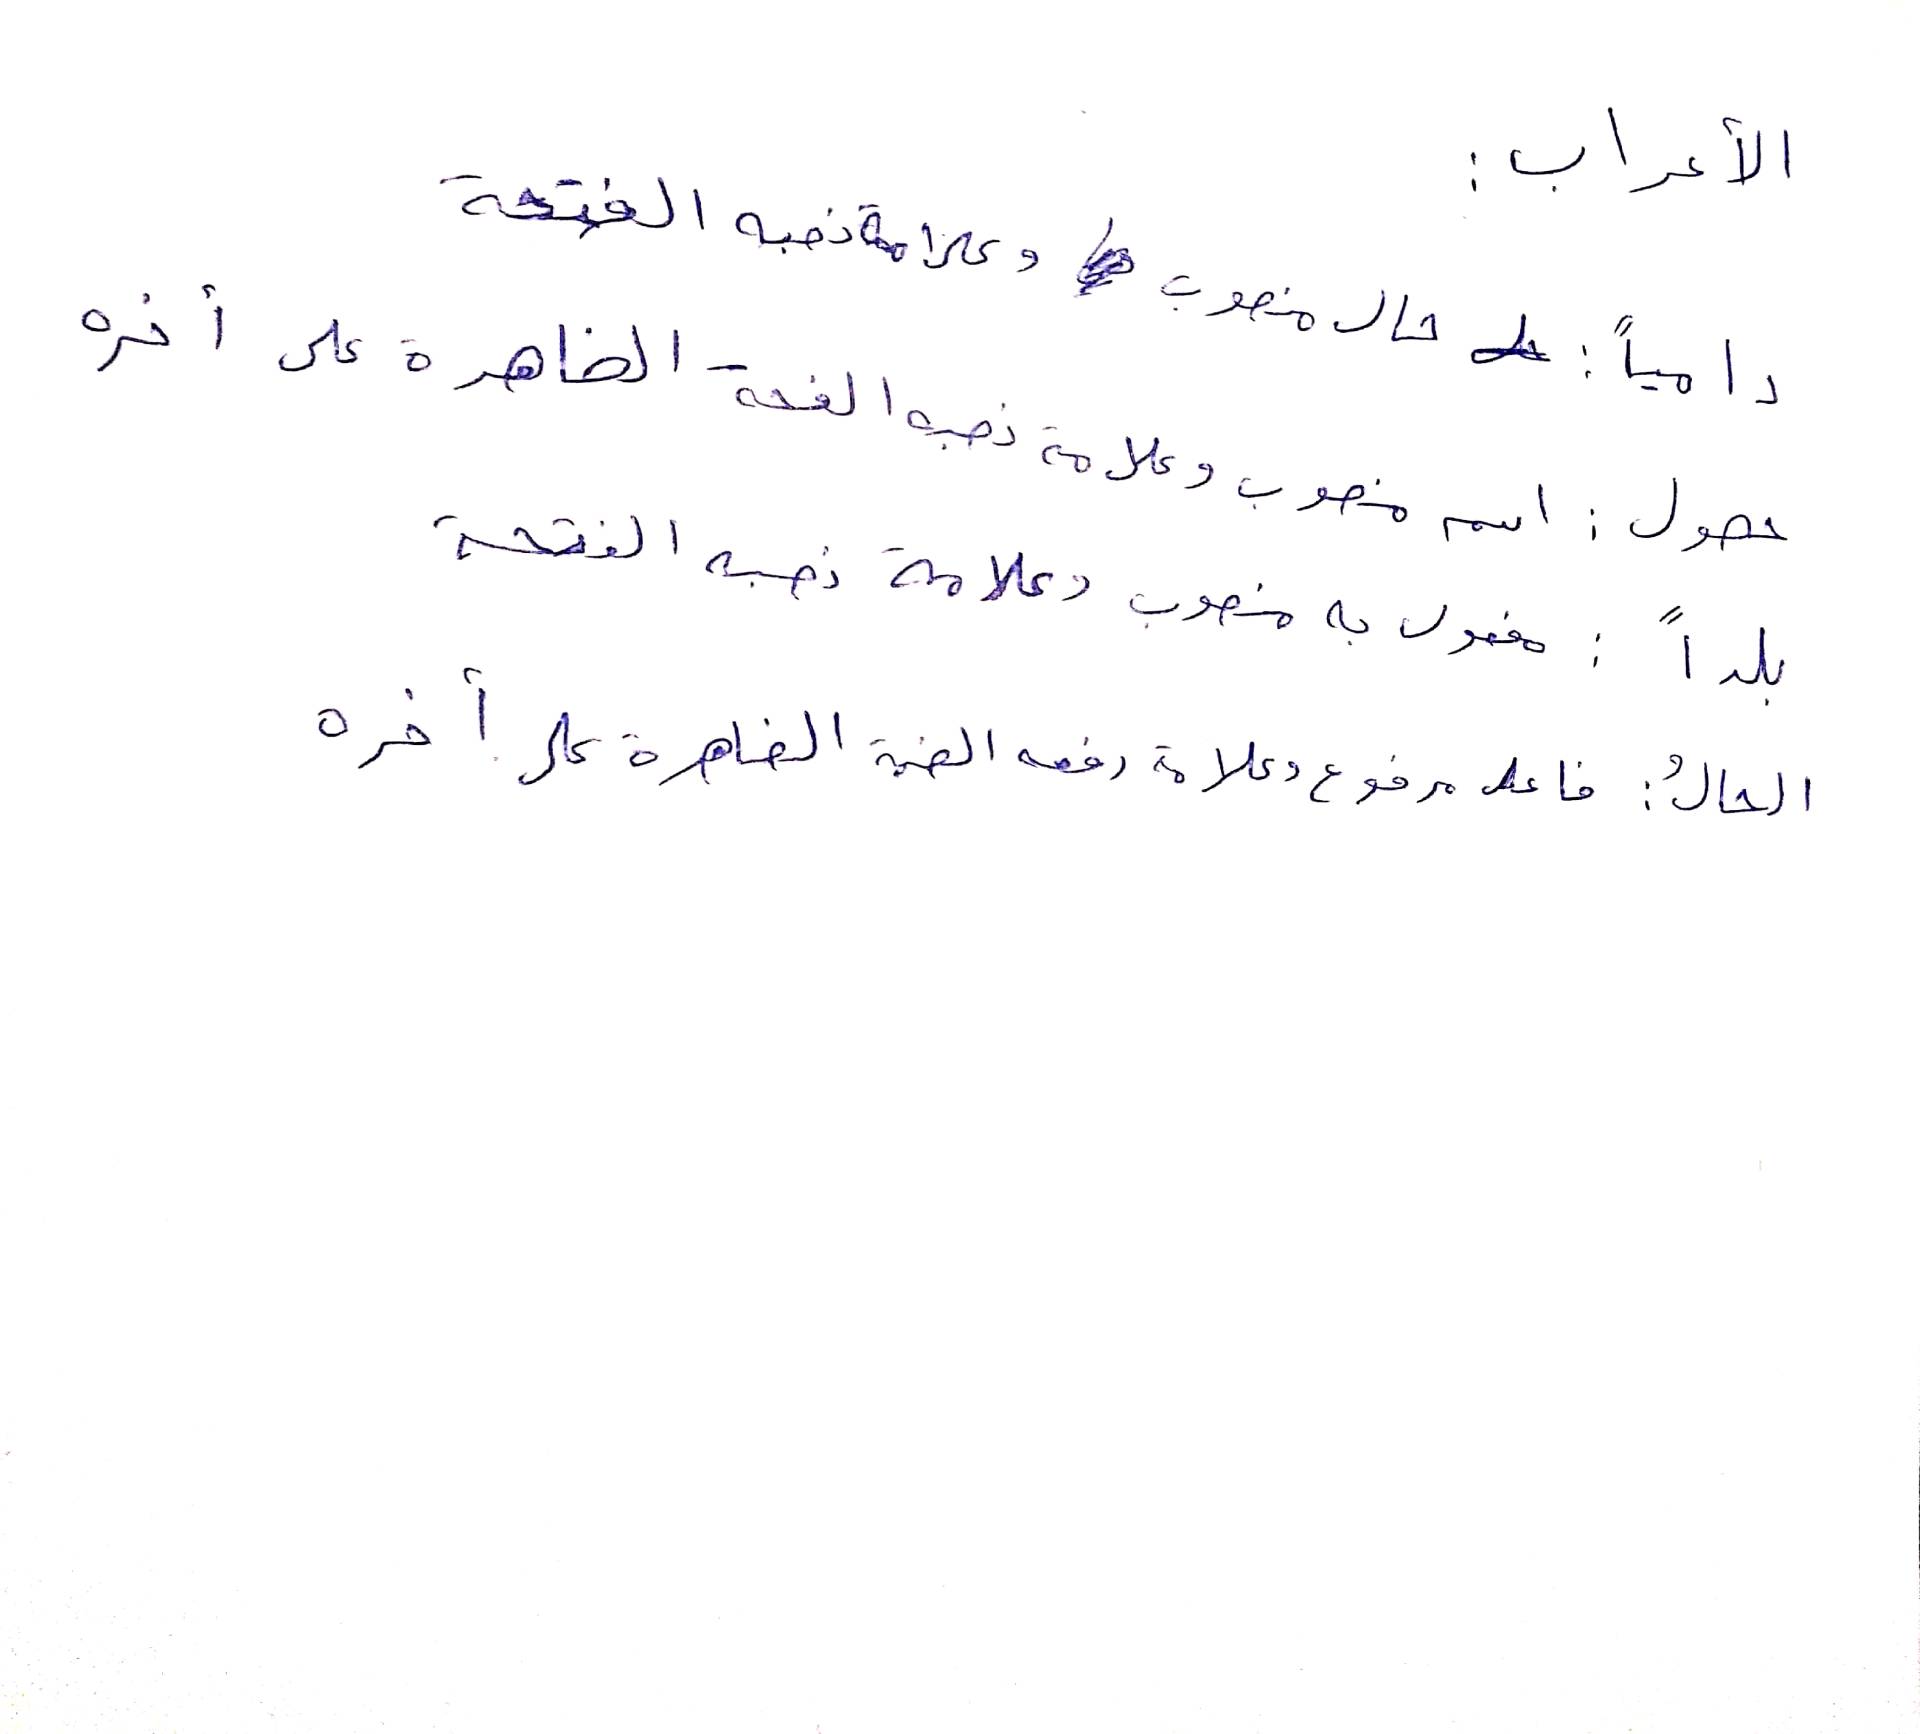 الأعراب :
دامياً : حال منصوب وعلامة نصبه الفتحة
حصول : اسم منصوب وعلامة نصبه الفحة الضاهرة على أخره
بلداً : مفعول به منصوب وعلامة نصبه الفتحة
الحالُ : فاعل مرفوع وعلامة رفعه الضمة الضاهرة على أخره